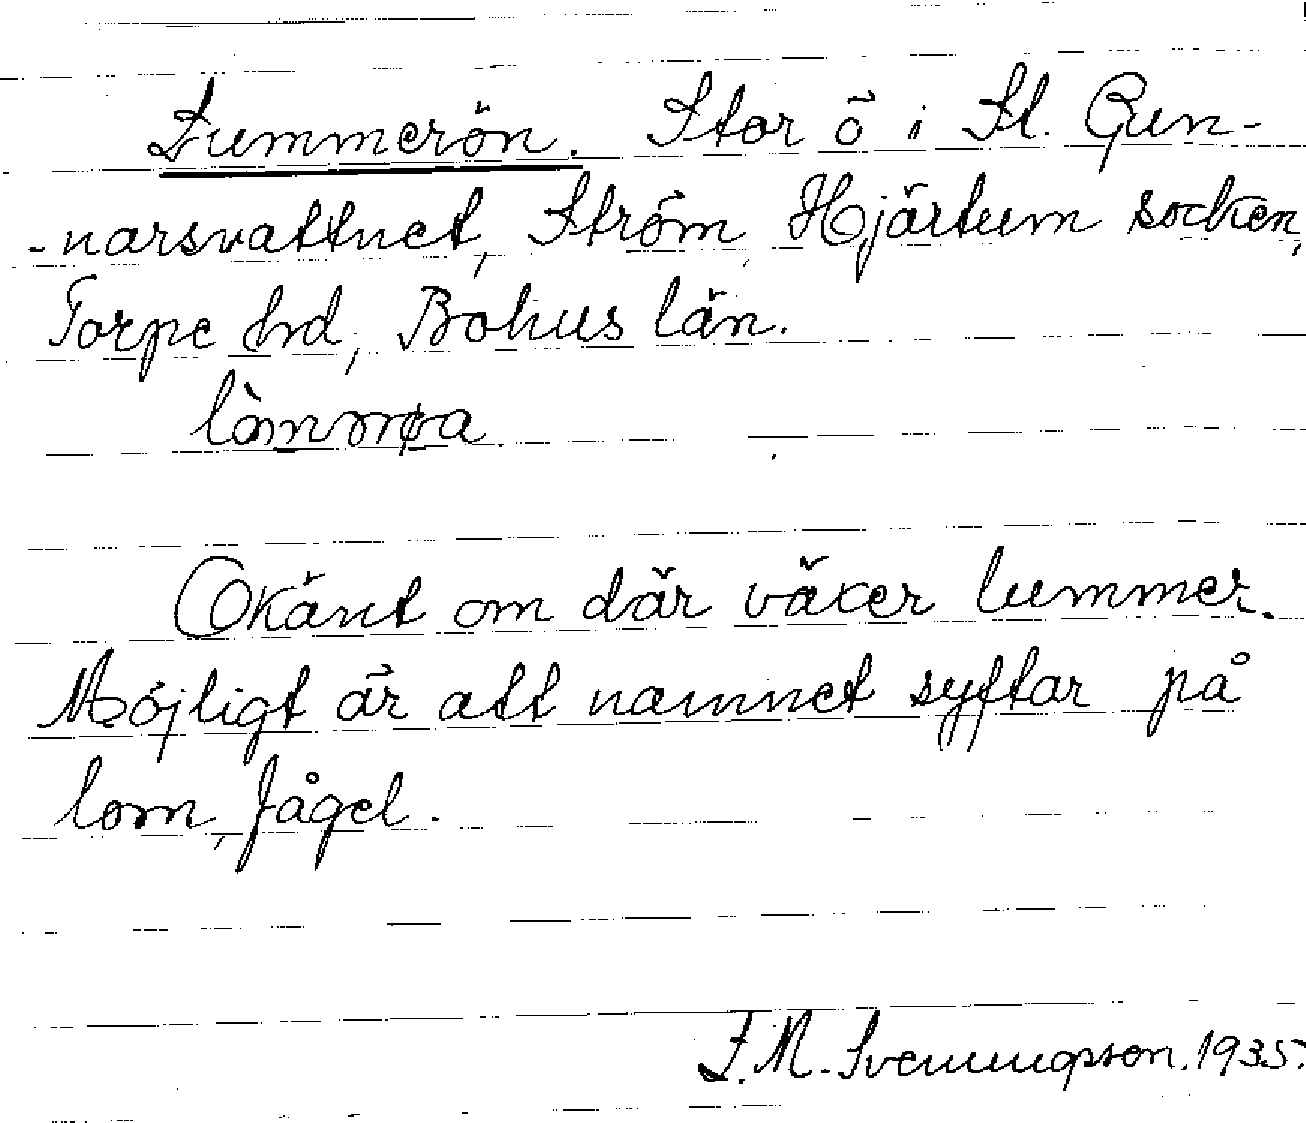 Lummerön. Stor ö i St. Gun-
-narsvattnet, Ström, Hjärtum socken,
Torpe hrd, Bohus län.
lòmmrøa
Okänt om där växer lummer.
Möjligt är att namnet syftar på
lom, fågel.
F. M. Svenungsson. 1935.